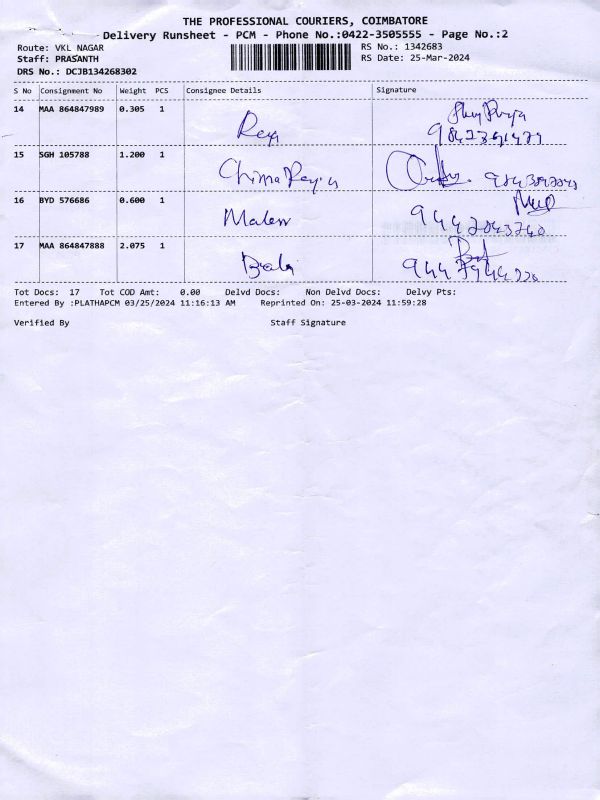 THE PROFESSIONAL COURIERS, COIMBATORE
Delivery Runsheet - PCM - Phone No.:0422-3505555 - Page No.:2
Route: VKL NAGAR RS No.: 1342683
Staff: PRASANTH RS Date: 25-Mar-2024
DRS No.: DCJB134268302
S No Consignment No Weight PCS Consignee Details Signature
14 MAA 864847989 0.305 1
15 SGH 105788 1.200 1
16 BYD 576686 0.600 1
17 MAA 864847888 2.075 1 Babi
Tot Docs: 17 Tot COD Amt: 0.00 Delvd Docs: Non Delvd Docs: Delvy Pts:
Entered By :PLATHAPCM 03/25/2024 11:16:13 AM Reprinted On: 25-03-2024 11:59:28
Verified By Staff Signature